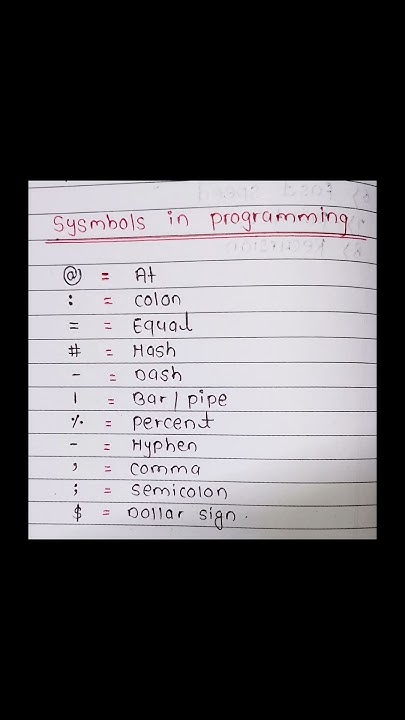 Sysmbols in programming
@ = At
: = colon
= = Equal
# = Hash
- = Dash
| = Bar / pipe
% = percent
- = Hyphen
, = comma
; = semicolon
$ = Dollar sign.